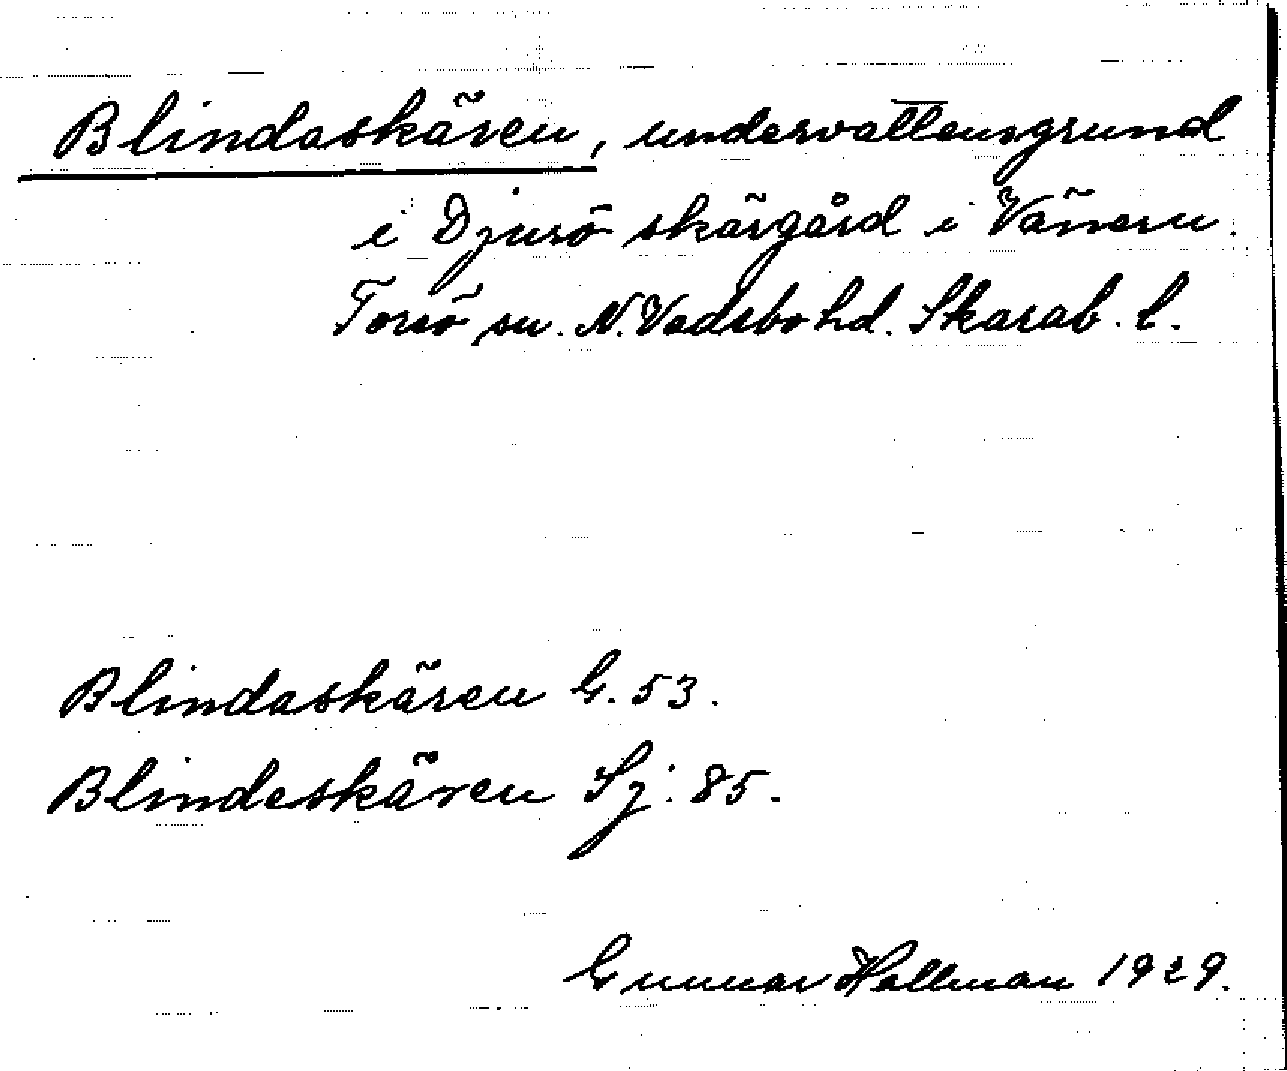 Blindaskären, undervattensgrund
i Djurö skärgård i Vänern.
Torsö sn. N. Vadsbo hd. Skarab. l.
Blindaskären G. 53.
Blindeskären Sj: 85.
Gunnar Hallman 1929.